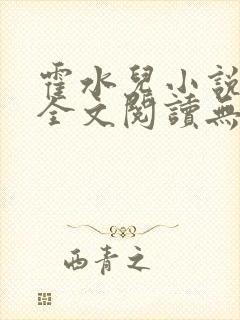 霍水兒小說
全文閱讀無
西青之